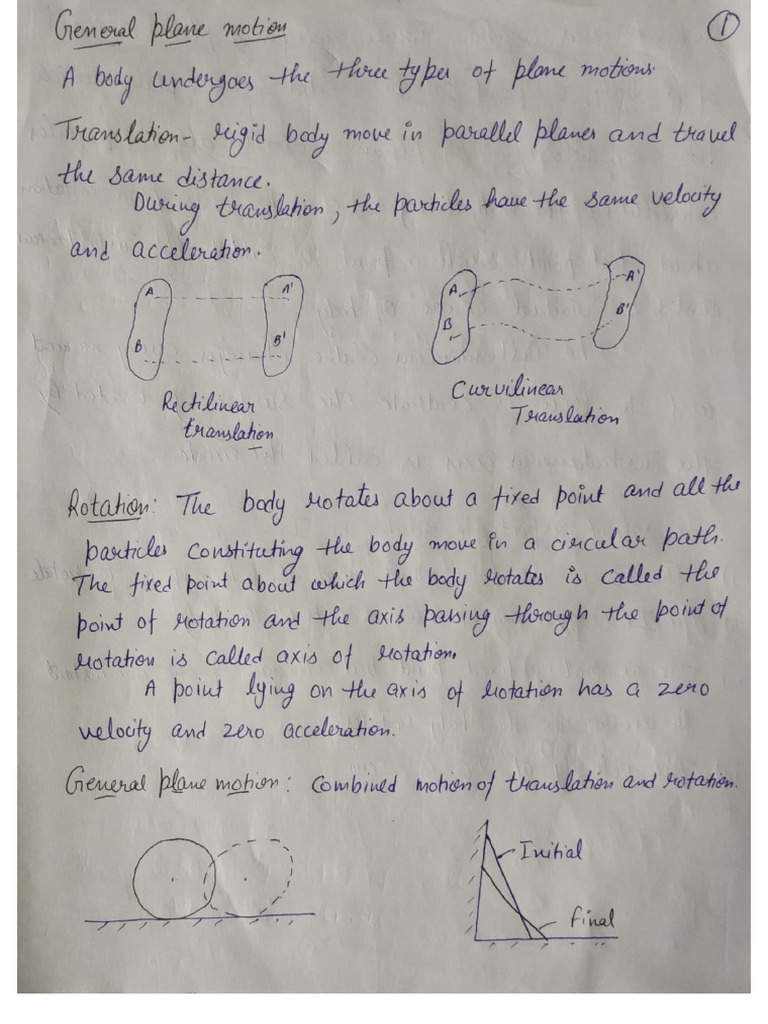 General plane motion
1
A body undergoes the three types of plane motions.
Translation- rigid body move in parallel planes and travel
the same distance.
During translation, the particles have the same velocity
and acceleration.
A A'
B B'
A A'
B B'
Rectilinear
translation
Curvilinear
Translation
Rotation: The body rotates about a fixed point and all the
particles constituting the body move in a circular path.
The fixed point about which the body rotates is called the
point of rotation and the axis passing through the point of
rotation is called axis of rotation.
A point lying on the axis of rotation has a zero
velocity and zero acceleration.
General plane motion: Combined motion of translation and rotation.
Initial
final